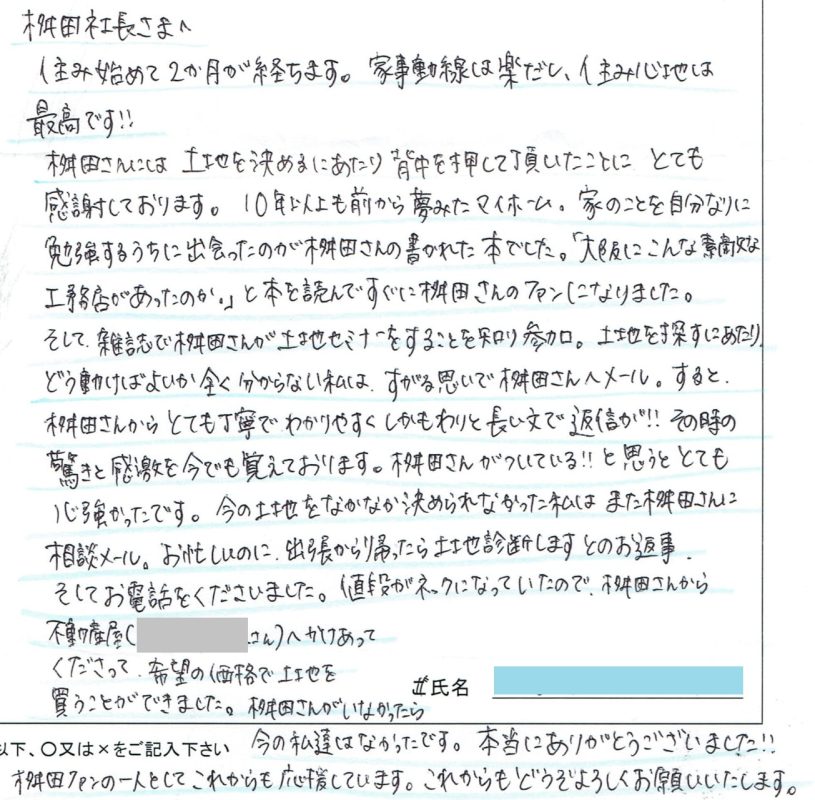 桝田社長さまへ
住み始めて2か月が経ちます。家事動線は楽だし、住み心地は
最高です!!
桝田さんには 土地を決めるにあたり背中を押して頂いたことに とても
感謝しております。10年以上も前から夢みたマイホーム。家のことを自分なりに
勉強するうちに出会ったのが桝田さんの書かれた本でした。「大阪にこんな素敵な
工務店があったのか。」と本を読んですぐに桝田さんのファンになりました。
そして、雑誌で桝田さんが土地セミナーをすることを知り参加。土地を探すにあたり、
どう動けばよいか全く分からない私は、すがる思いで桝田さんへメール。すると、
桝田さんから とても丁寧でわかりやすく しかもわりと長い文で返信が!! その時の
驚きと感激を今でも覚えております。桝田さんがついている!! と思うと とても
心強かったです。今の土地をなかなか決められなかった私は また桝田さんに
相談メール。お忙しいのに、出張から帰ったら土地診断します とのお返事、
そしてお電話をくださいました。値段がネックになっていたので、桝田さんから
不動産屋( さん)へかけあって
くださって、希望の価格で土地を
買うことができました。桝田さんがいなかったら
氏名
以下、〇又は×をご記入下さい
今の私達はなかったです。本当にありがとうございました!!
桝田ファンの一人として これからも応援しています。これからもどうぞよろしくお願いいたします。